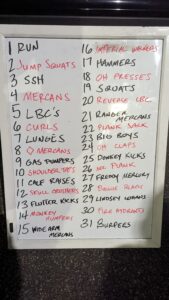 1 RUN
2 JUMP SQUATS
3 SSH
4 MERCANS
5 LBC's
6 CURLS
7 LUNGES
8 MERCANS
9 GAS PUMPERS
10 SHOULDER TAPS
11 CALF RAISES
12 SKULL CRUSHERS
13 FLUTTER KICKS
14 MONKEY HUMPERS
15 WIDE ARM MERCANS
16 IMPERIAL WALKERS
17 HAMMERS
18 OH PRESSES
19 SQUATS
20 REVERSE LBC
21 RANGER MERCANS
22 PLANK JACK
23 BIG BOYS
24 OH CLAPS
25 DONKEY KICKS
26 PLANK
27 FREDDY MERCURY
28
29 LINDSEY
30 FIRE HYDRANTS
31 BURPEES